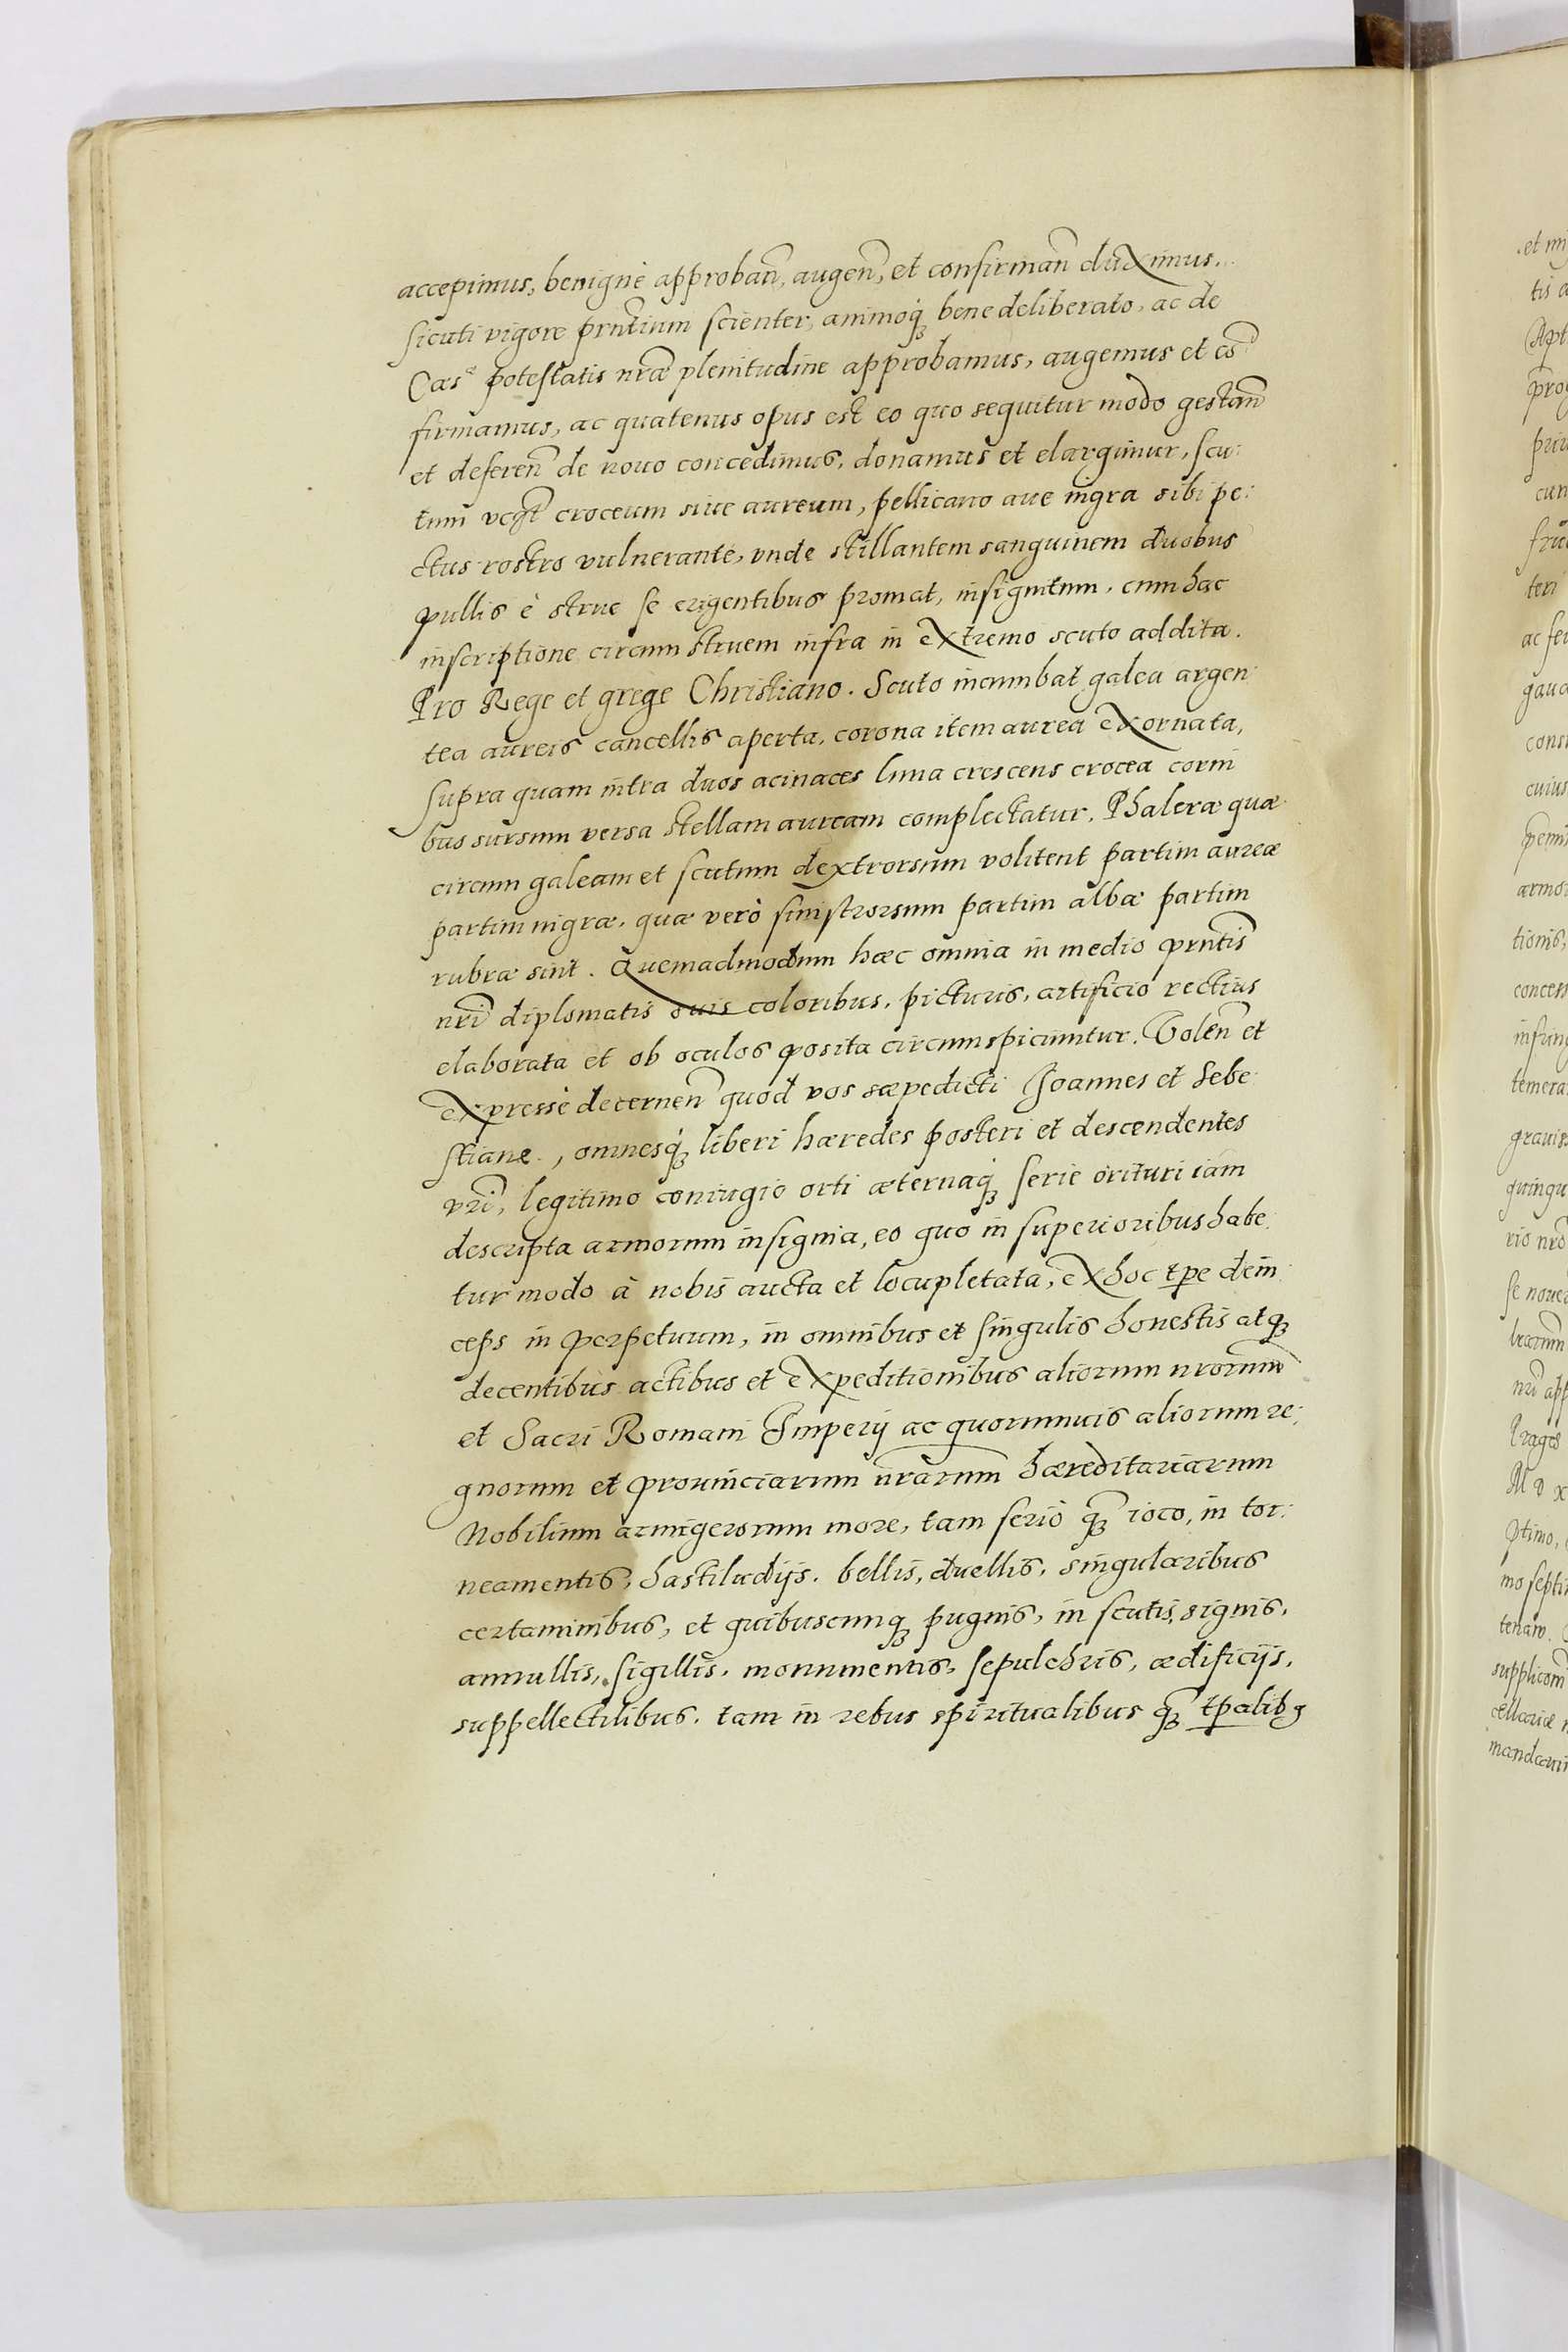 accepimus, benignè approban̄, augen̄, et confirman̄ duximus.
sicuti vigore prn̄tium scienter, animoq́ꝫ bene deliberato, ac de
Caes.ᵉ potestatis nrāe plenitudine approbamus, augemus et cō
firmamus, ac quatenus opus est eo quo sequitur modo gestan̄
et deferen̄ de nouo concedimus, donamus et elargimur, scu:
tum vcꝫt croceum siue aureum, pellicano aue nigra sibi pe:
ctus rostro vulnerante, vnde stillantem sanguinem duobus
pullis è strue se erigentibus promat, insignitum, cum hac
inscriptione circum struem infra in extremo scuto addita.
Pro Rege et grege Christiano. Scuto incumbat galea argen
tea aureis cancellis aperta, corona item aurea exornata,
supra quam intra duos acinaces luna crescens crocea corni
bus sursum versa stellam auream complectatur. Phalerae quae
circum galeam et scutum dextrorsum volitent partim aureae
partim nigrae, quae verò sinistrorsum partim albae partim
rubrae sint. Quemadmodum haec omnia in medio prn̄tis
nrī diplomatis suis coloribus, picturis, artificio rectius
elaborata et ob oculos posita circumspiciuntur. Volen̄ et
expressè decernen̄ quod vos saepedicti Joannes et Sebe
stiane, omnesq́ꝫ liberi haeredes posteri et descendentes
vrī, legitimo coniugio orti aeternaq́ꝫ serie orituri iam
descripta armorum insignia, eo quo in superioribus habe:
tur modo à nobis aucta et locupletata, ex hoc tp̄e dein
ceps in perpetuum, in omnibus et singulis honestis atqꝫ
decentibus actibus et expeditionibus aliorum nrorum̄
et Sacri Romani Imperij ac quorumuis aliorum re:
gnorum et prouinciarum nr̄arum haereditariarum
Nobilium armigerorum more, tam seriò qꝫ̄ ioco, in tor:
neamentis, hastiludijs, bellis, duellis, singularibus
certaminibus, et quibuscunqꝫ pugnis, in scutis, signis,
annullis, sigillis, monumentis, sepulchris, aedificijs,
suppellectilibus, tam in rebus spiritualibus qꝫ̄ tp̄alibꝫ